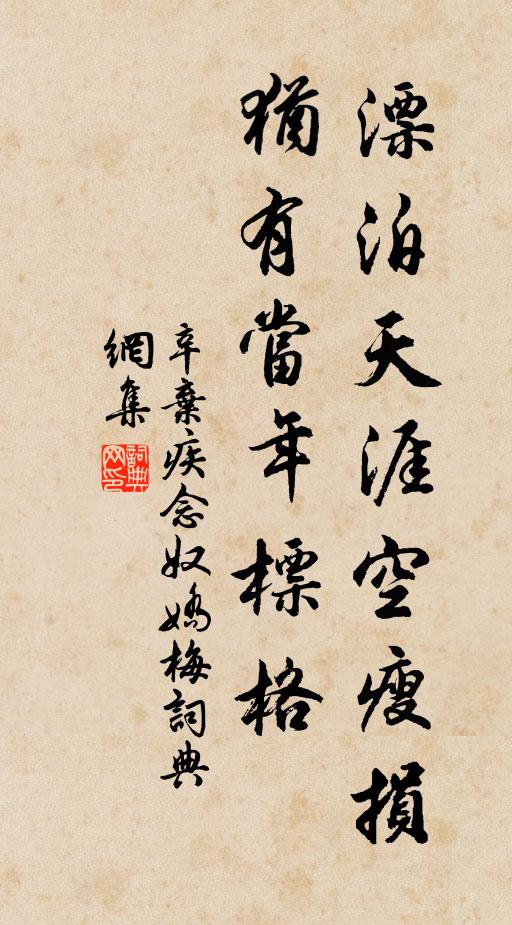 漂泊天涯空瘦損
猶有當年標格
辛棄疾念奴嬌梅詞典
網集
詞典
网印